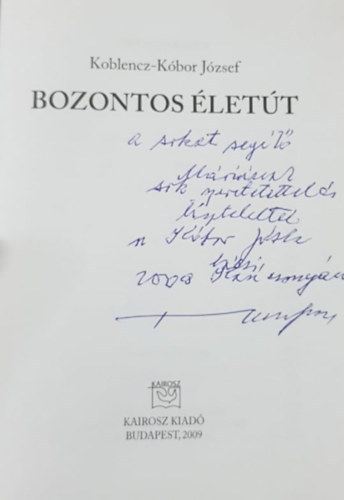 Koblencz-Kóbor József
BOZONTOS ÉLETÚT
a sokat segítő
Máriának
sok szeretettel és
tisztelettel
Kóbor Jóska
bácsi
2009 Karácsonyán
KAIROSZ
KAIROSZ KIADÓ
BUDAPEST, 2009